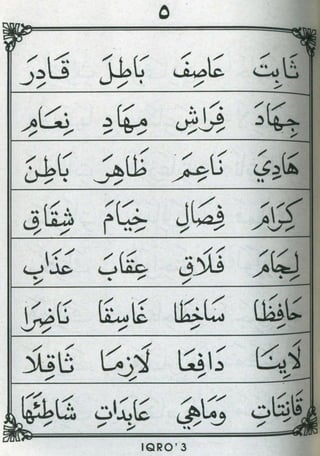 ٥
ثَابِتَ عَاصِفَ بَاطِلَ قَادِرَ
جِهَادَ فِرَاشِ مِهَادِ نِعَامِ
هَادِيَ نَاعِمَ ظَاهِرَ بَاطِنَ
كِرَامَ فِصَالِ خِيَامَ شِقَاقِ
لِجَامَ فَلَاقِ عِقَابَ عَذَابِ
حَافِظَا سَاخِطَا غَاسِقَا نَاضِرَا
لَابِنَا دَافِعَا لَازِمَا ثَاقِلَا
قَانِتَاتِ وَمَاهِيَ عَابِدَاتِ شَاطِئَهَا
IQRO' 3